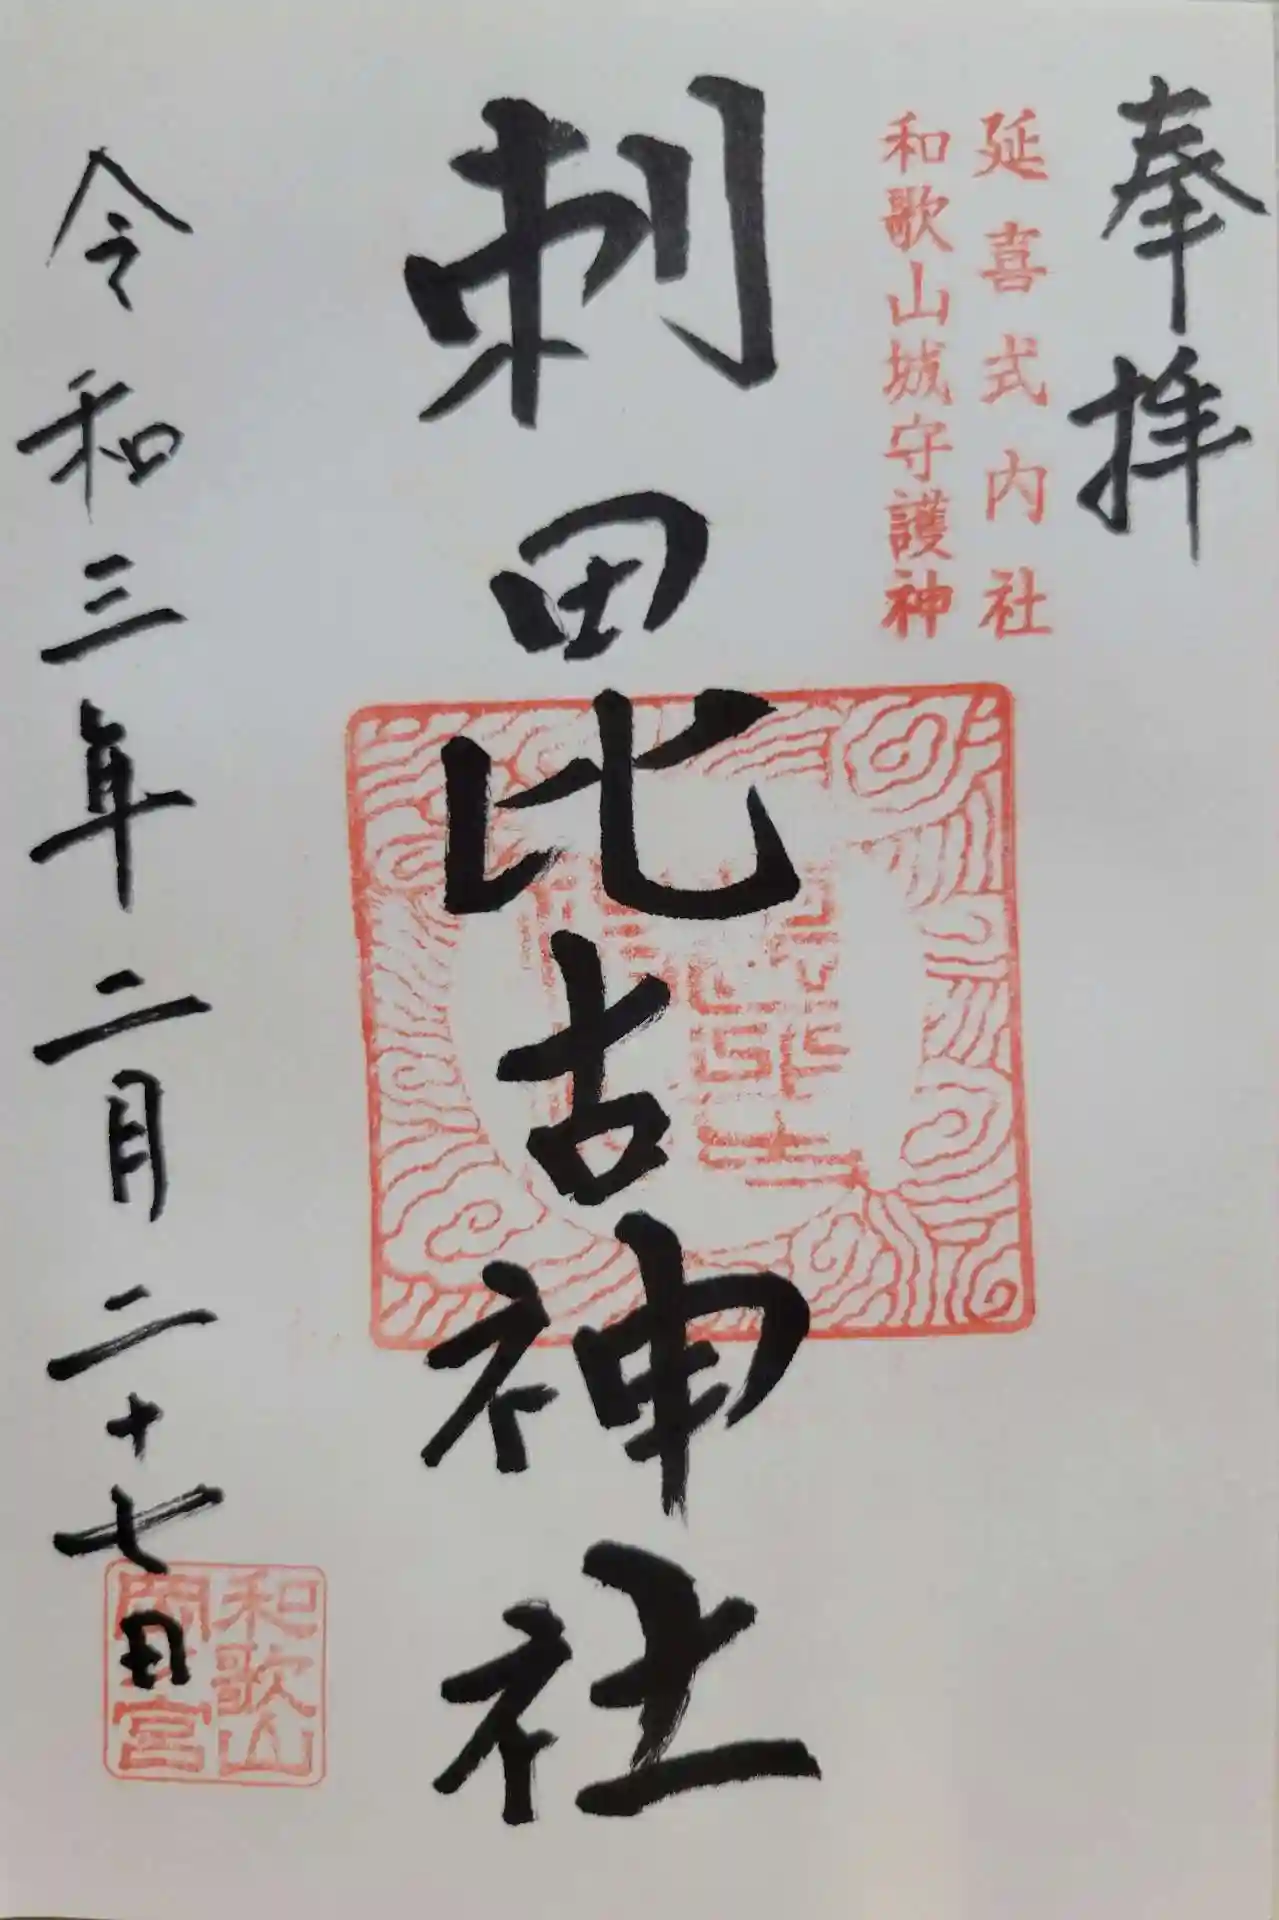 奉拝
延喜式内社
和歌山城守護神
刺田比古神社
令和三年二月二十七日
和歌山